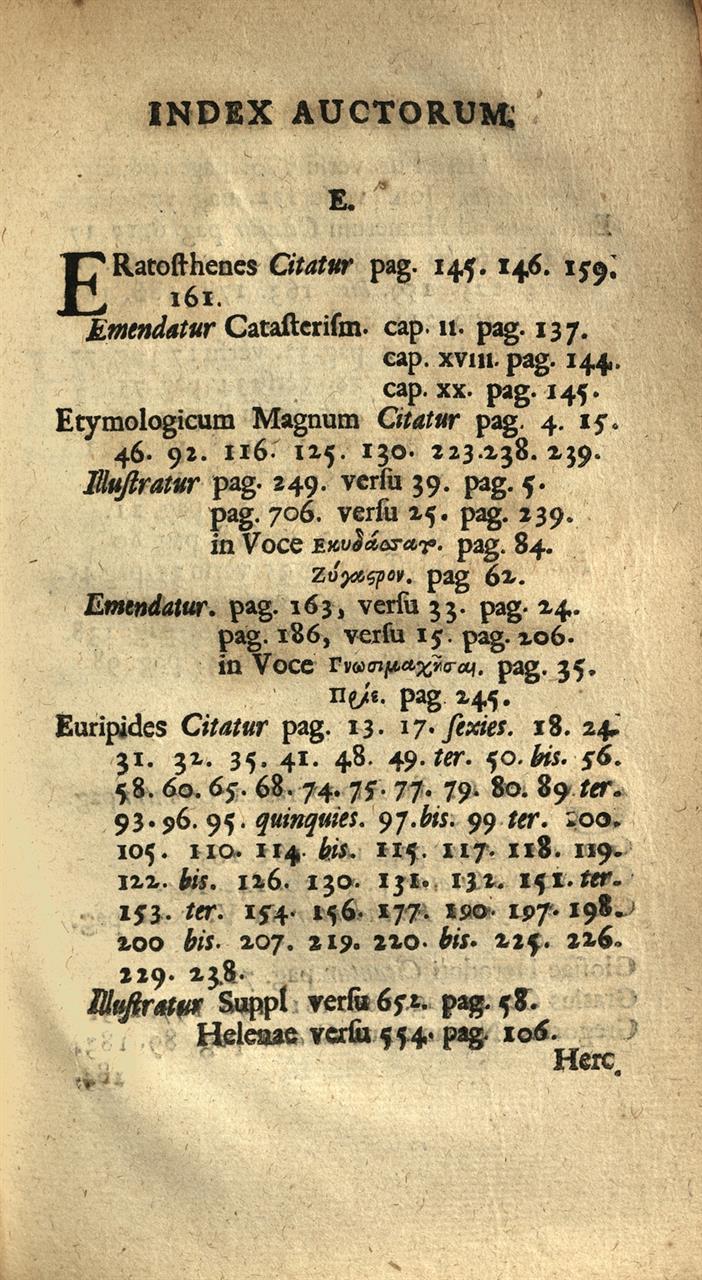 INDEX AUCTORUM.
E.
ERatosthenes Citatur pag. 145. 146. 159.
161.
Emendatur Catasterism. cap. II. pag. 137.
cap. XVIII. pag. 144.
cap. XX. pag. 145.
Etymologicum Magnum Citatur pag. 4. 15.
46. 92. 116. 125. 130. 223.238. 239.
Illustratur pag. 249. versu 39. pag. 5.
pag. 706. versu 25. pag. 239.
in Voce pag. 84.
pag 62.
Emendatur. pag. 163, versu 33. pag. 24.
pag. 186, versu 15. pag. 206.
in Voce Γνωσιμαχῆσαι. pag. 35.
pag. 245.
Euripides Citatur pag. 13. 17. sexies. 18. 24.
31. 32. 35. 41. 48. 49. ter. 50. bis. 56.
58. 60. 65. 68. 74. 75. 77. 79. 80. 89 ter.
93. 96. 95. quinquies. 97. bis. 99 ter. 100.
105. 110. 114. bis. 115. 117. 118. 119.
122. bis. 126. 130. 131. 132. 151. ter.
153. ter. 154. 156. 177. 190. 197. 198.
200 bis. 207. 219. 220. bis. 225. 226.
229. 238.
Illustratur Suppl versu 652. pag. 58.
Helenae versu 554. pag. 106.
Herc.